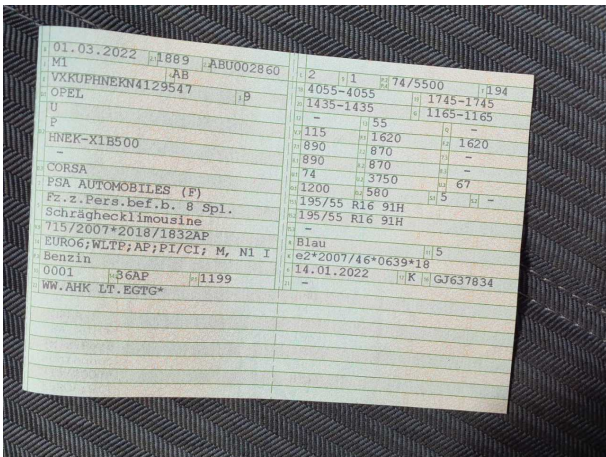 01.03.2022 1889 ABU002860
M1 AB
VXKUPHNEKN4129547 9
OPEL
U
P
HNEK-X1B500
-
CORSA
PSA AUTOMOBILES (F)
Fz.z.Pers.bef.b. 8 Spl.
Schräghecklimousine
715/2007*2018/1832AP
EURO6;WLTP;AP;PI/CI; M, N1 I
Benzin
0001 36AP 1199
WW.AHK LT.EGTG*
2 1 74/5500 194
4055-4055 1745-1745
1435-1435 1165-1165
- 55 -
115 1620 1620
890 870 -
890 870 -
74 3750 67
1200 580 5 -
195/55 R16 91H
195/55 R16 91H
-
Blau 5
e2*2007/46*0639*18
14.01.2022 K GJ637834
-